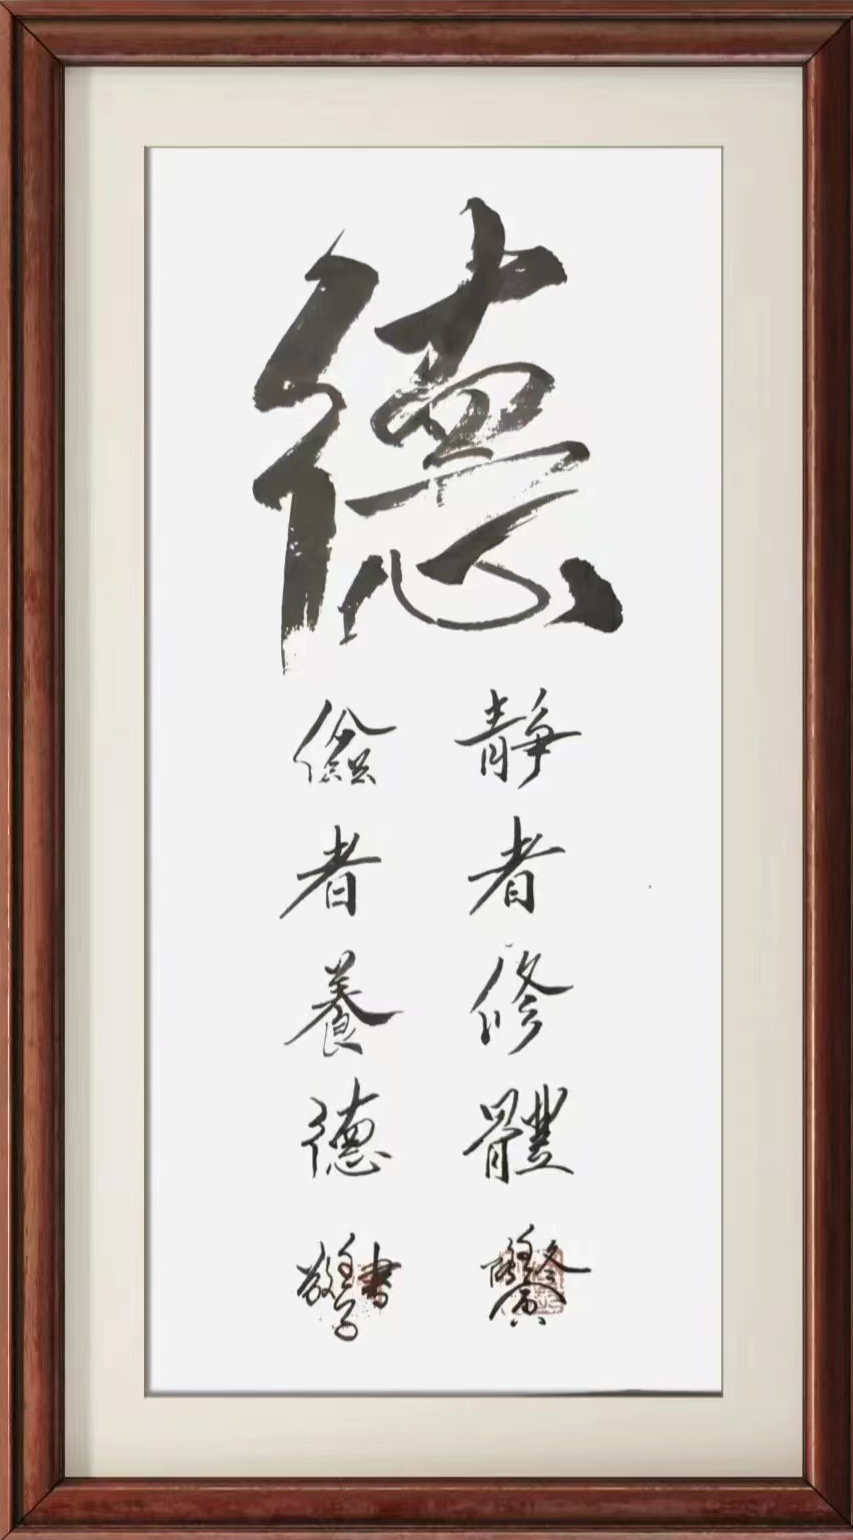 德
靜者修體
儉者養德